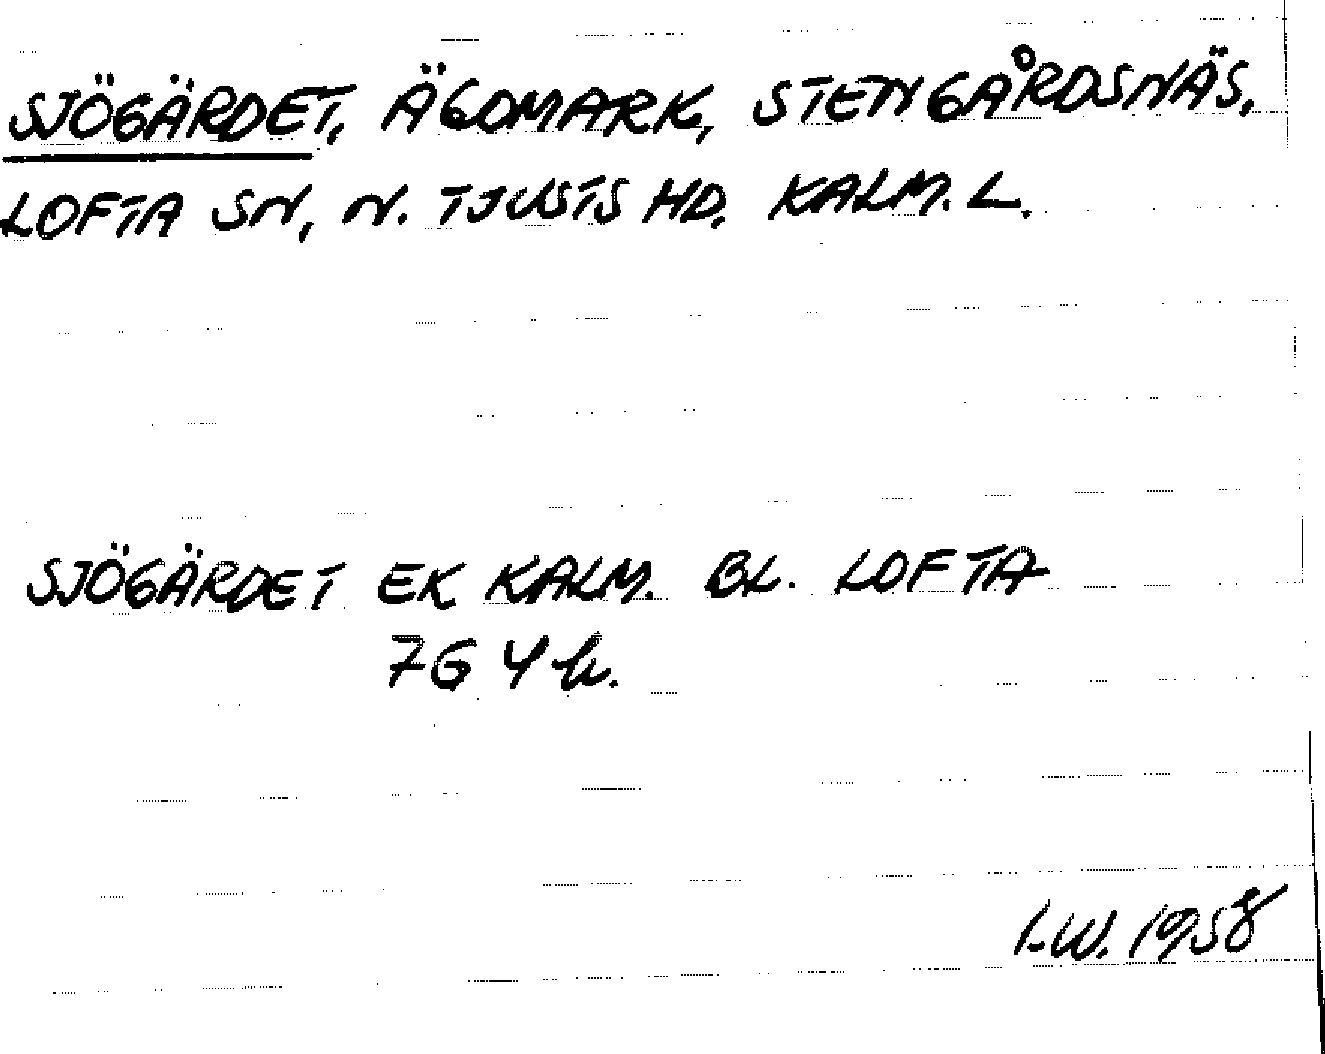 SJÖGÄRDET, ÄGOMARK, STENGÅRDSNÄS,
LOFTA SN, N. TJUSTS HD. KALM. L.
SJÖGÄRDET EK KALM. BL. LOFTA
7G 4h.
I-W. 1958